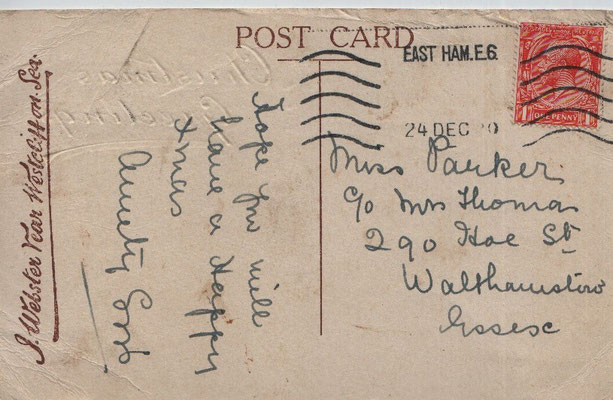 POST CARD
EAST HAM. E.6
24 DEC
ONE PENNY
Miss Parker
c/o Mrs Thomas
290 Hoe St
Walthamstow
Essex
Hope you will
have a Happy
Xmas
Christmas
Greeting
J. Webster Vear Westcliff-on-Sea.